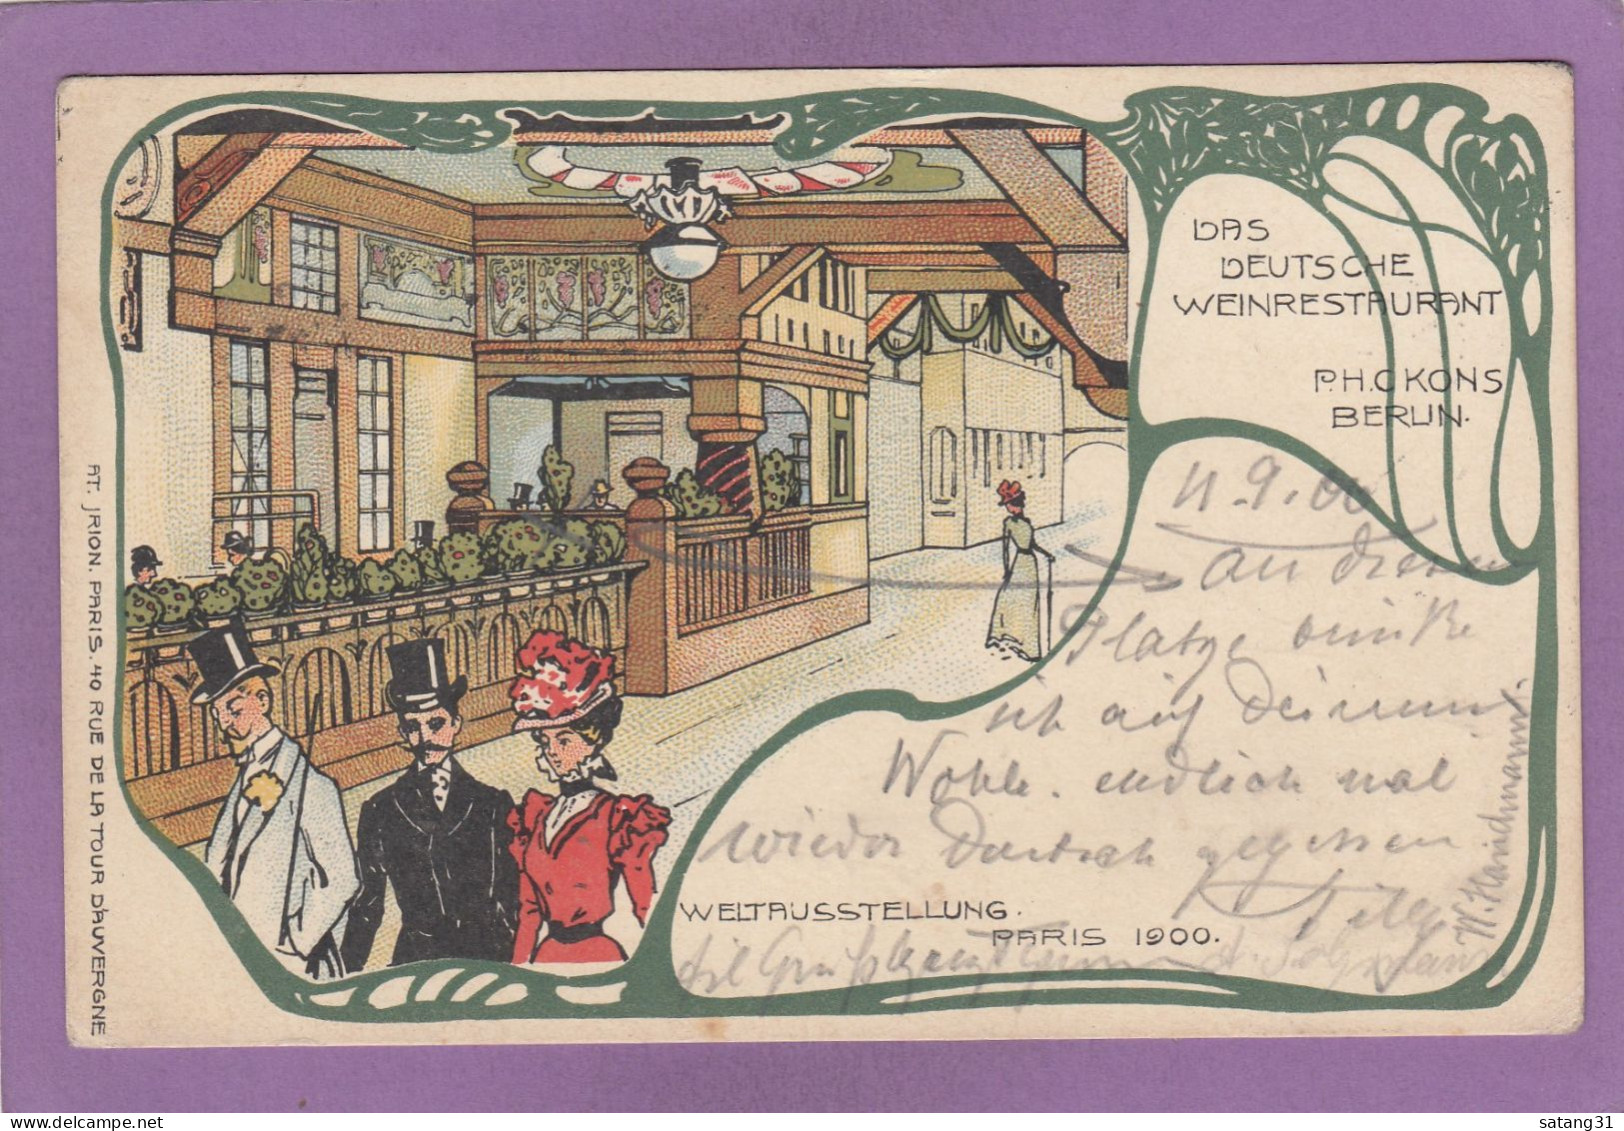 DAS
DEUTSCHE
WEINRESTAURANT
P.H.C KONS
BERLIN.
11.9.00
an diesem
Platze trinke
ich auf Deinem
Wohle. endlich mal
wieder Deutsch gegessen
WELTAUSSTELLUNG.
PARIS 1900.
W. Haidmann.
AT. JRION. PARIS. 40 RUE DE LA TOUR D'AUVERGNE
satang31